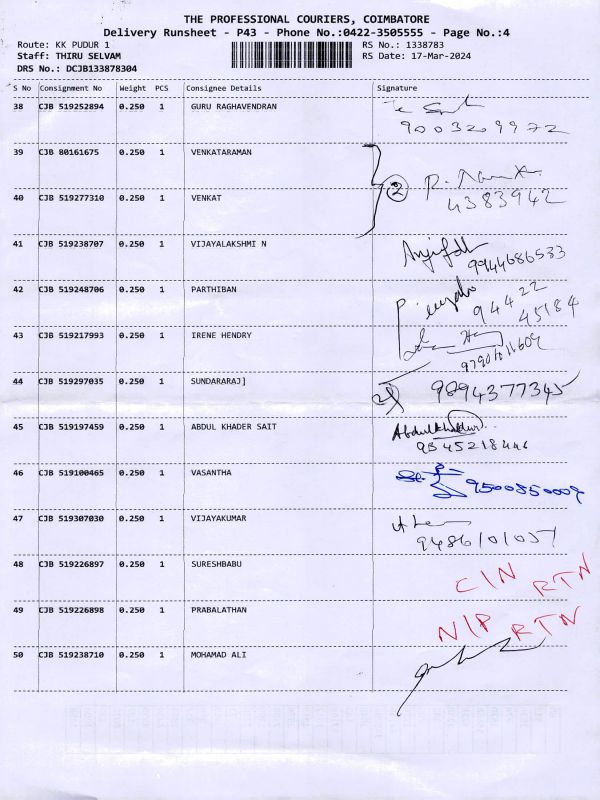 THE PROFESSIONAL COURIERS, COIMBATORE
Delivery Runsheet - P43 - Phone No.:0422-3505555 - Page No.:4
Route: KK PUDUR 1 RS No.: 1338783
Staff: THIRU SELVAM RS Date: 17-Mar-2024
DRS No.: DCJB133878304
S No Consignment No Weight PCS Consignee Details Signature
38 CJB 519252894 0.250 1 GURU RAGHAVENDRAN
9003209972
39 CJB 80161675 0.250 1 VENKATARAMAN
2
40 CJB 519277310 0.250 1 VENKAT 4383942
41 CJB 519238707 0.250 1 VIJAYALAKSHMI N
9944686533
42 CJB 519248706 0.250 1 PARTHIBAN 94422
45184
43 CJB 519217993 0.250 1 IRENE HENDRY
44 CJB 519297035 0.250 1 SUNDARARAJ] 9894377345
45 CJB 519197459 0.250 1 ABDUL KHADER SAIT Abdulkhader
9345218446
46 CJB 519100465 0.250 1 VASANTHA 9500850009
47 CJB 519307030 0.250 1 VIJAYAKUMAR
9486101037
48 CJB 519226897 0.250 1 SURESHBABU C/N RTN
49 CJB 519226898 0.250 1 PRABALATHAN N/P RTN
50 CJB 519238710 0.250 1 MOHAMAD ALI